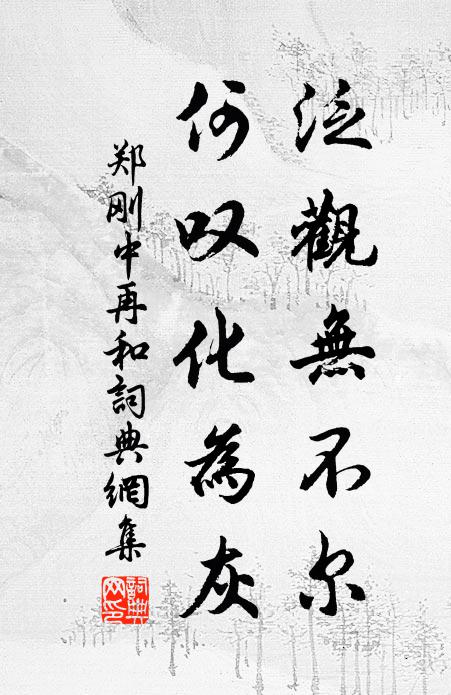 泛觀無不尔
何叹化為灰
郑刚中再和詞典網集
詞典网印